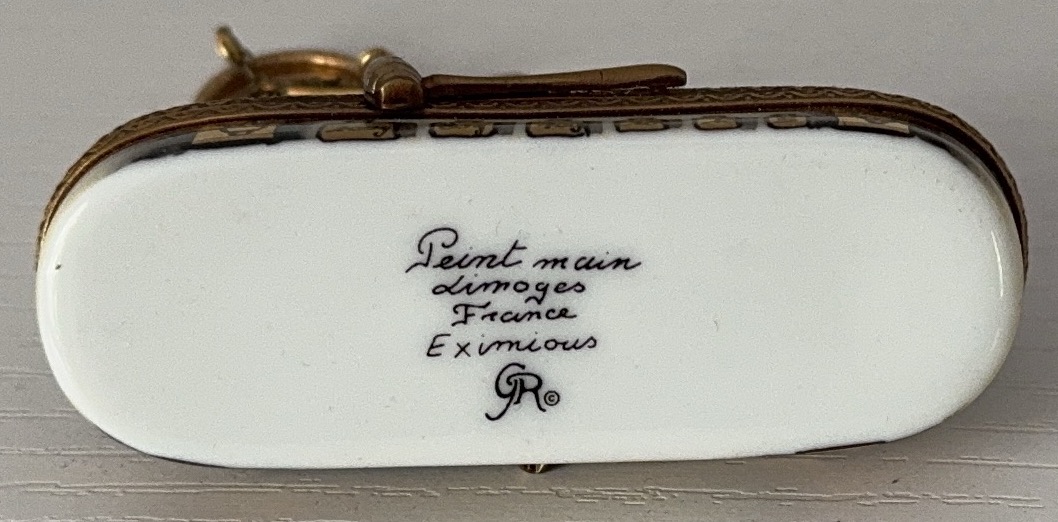 Peint main
Limoges
France
Eximious
GR©